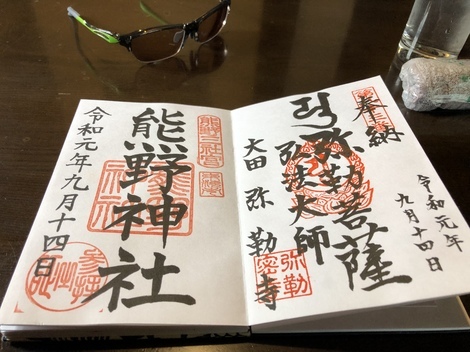 奉納
令和元年
九月十四日
弥勒菩薩
弘法大師
大田 弥勒寺
弥勒
密寺
熊野神社
令和元年九月十四日